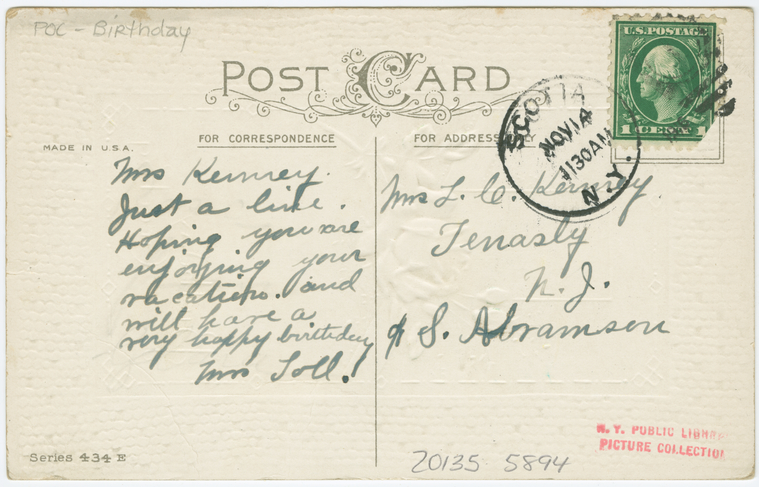 POC - Birthday
POST CARD
U.S. POSTAGE
1 CENT 1
SCOTIA
NOV 14
1130 AM
N.Y.
MADE IN U.S.A.
FOR CORRESPONDENCE
FOR ADDRESS ONLY
Mrs Kenney.
Just a line.
Hoping you are
enjoying your
vacation. and
will have a
very happy birthday
Mrs Toll.
Mrs L. C. Kenney.
Tenasly
N. J.
℅ S. Abramson
N. Y. PUBLIC LIBRARY
PICTURE COLLECTION
Series 434 E
20135 5894